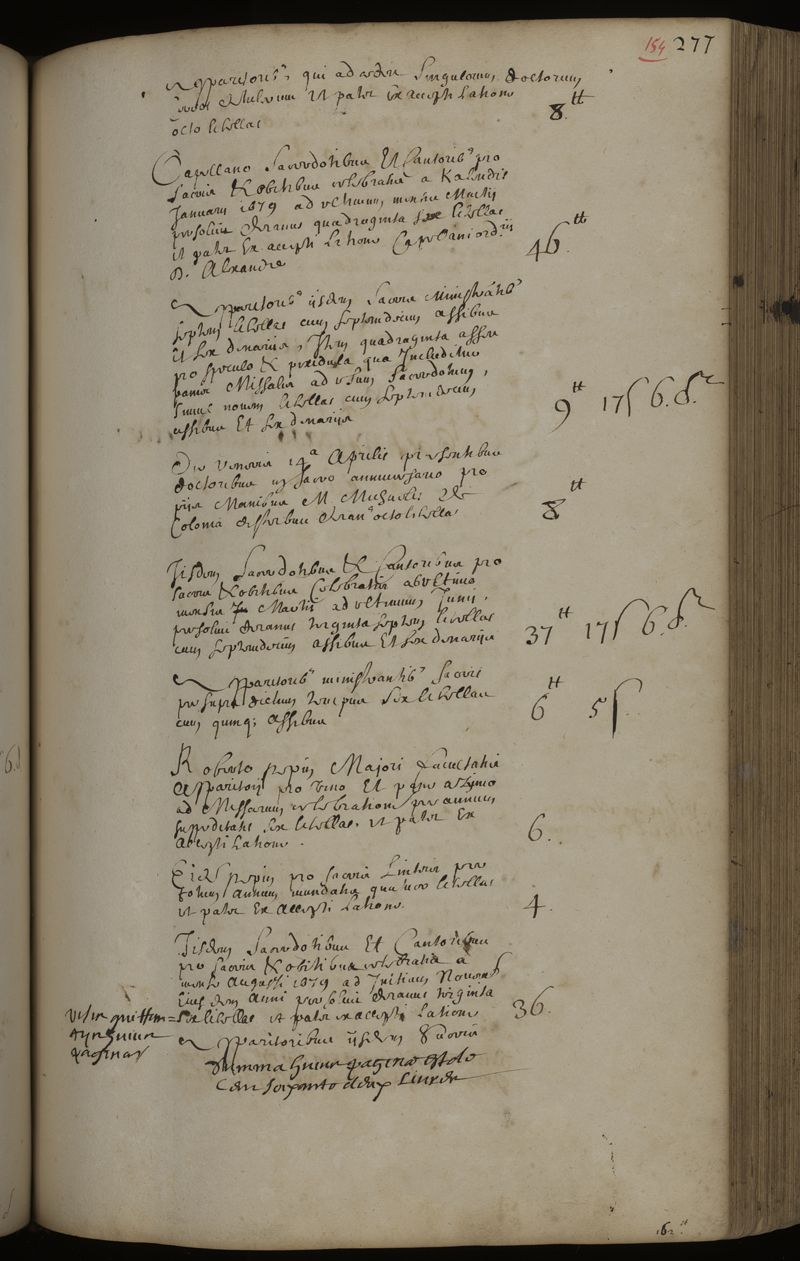 154 277
Apparitorib, qui ad ædes Singulorum Doctorum
ut patet ex accepti Latione
octo libellas 8.tt
Capellano Sacerdotibus Et Cantorib pro
Sacris & obitibus celebratis a Kalendis
Januarii 1679 ad ultimum mensis Martij
persolvi Decanus quadraginta sex libellas
ut patet Ex accepti Latione Capellani ord.rii
D. Alexandre 46.tt
Apparitorib ijsdem Sacris Ministrantib
septem libellas cum septemdecim assibus
Et sex denarijs, Item quadraginta asses
pro speculo & pixidula qua Includitur
panis Missalis ad usum Sacerdotum,
simul novem libellas cum septemdecim
assibus Et sex denarijs 9tt 17s 6.d.
Die Veneris 14a Aprilis presentibus
Doctoribus in Sacro anniversario pro
pijs Manibus M. Michaelis De
Colonia Decanus octo libellas 8tt
Iisdem Sacerdotibus & Cantoribus pro
Sacris & obitibus Celebratis ab ultima
mensis Martii ad ultimum Junii,
persolvi Decanus triginta septem libellas
cum septemdecim assibus Et sex denarijs 37tt 17s 6.d.
Apparitorib ministrantib Sacris
per supra dictum tempus sex libellas
cum quinq; assibus 6tt 5s.
Roberto pepin Majori Facultatis
Apparitori pro vino Et pane azimo
ad Missarum celebrationem per annum
suppeditatis sex libellas, ut patet Ex
Accepti Latione. 6.
Eidem pepin pro Sacris Linteis per
totum Annum mundatis quatuor libellas
ut patet Ex Accepti Latione. 4.
Iisdem Sacerdotibus Et Cantoribus
pro Sacris & obitibus celebratis a
mense Augusti 1679 ad Initium Novemb
Eiusdem Anni persolvi Decanus triginta
sex libellas ut patet ex accepti Latione 36.
Apparitoribus ijsdem Sacris
Summa huius paginæ
Cent soixante deux Livres
paginas
162tt